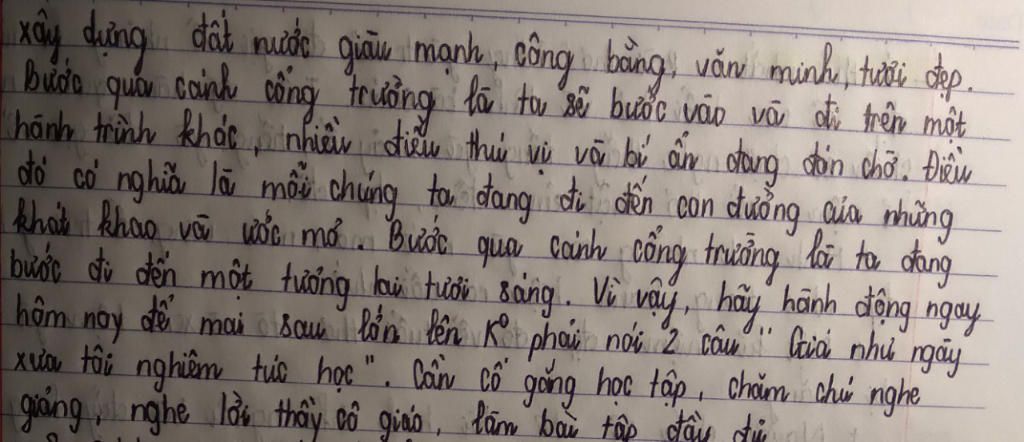 xây dựng đất nước giàu mạnh, công bằng, văn minh, tươi đẹp.
Bước qua cánh cổng trường là ta sẽ bước vào và đi trên một
hành trình khác, nhiều điều thú vị và bí ẩn đang đón chờ. Điều
đó có nghĩa là mỗi chúng ta đang đi đến con đường của những
khát khao và ước mơ. Bước qua cánh cổng trường là ta đang
bước đi đến một tương lai tươi sáng. Vì vậy, hãy hành động ngay
hôm nay để mai sau lớn lên K⁰ phải nói 2 câu " Giá như ngày
xưa tôi nghiêm túc học". Cần cố gắng học tập, chăm chú nghe
giảng, nghe lời thầy cô giáo, làm bài tập đầy đủ